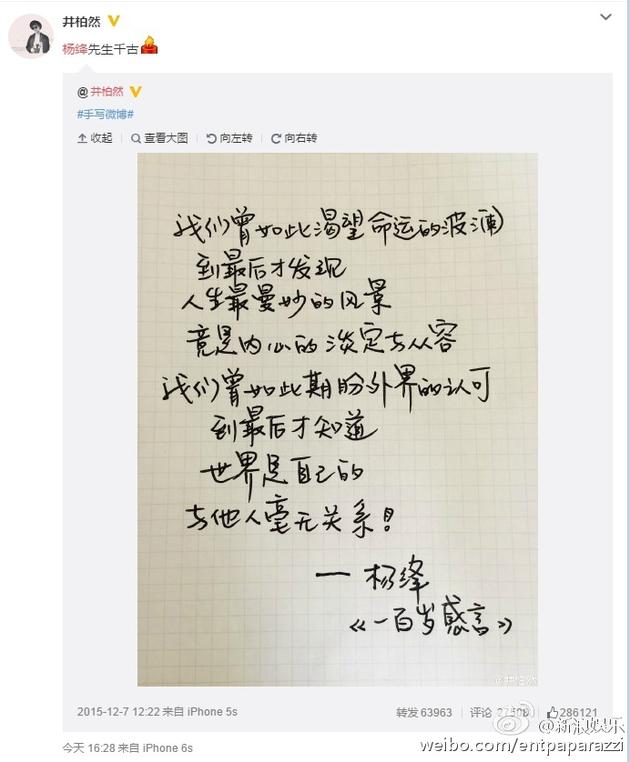 井柏然
杨绛先生千古
@井柏然
#手写微博#
收起 查看大图 向左转 向右转
我们曾如此渴望命运的波澜
到最后才发现
人生最曼妙的风景
竟是内心的淡定与从容
我们曾如此期盼外界的认可
到最后才知道
世界是自己的
与他人毫无关系!
— 杨绛
《一百岁感言》
@井柏然
2015-12-7 12:22 来自 iPhone 5s 转发 63963 评论 286121
今天 16:28 来自 iPhone 6s
@新浪娱乐
weibo.com/entpaparazzi